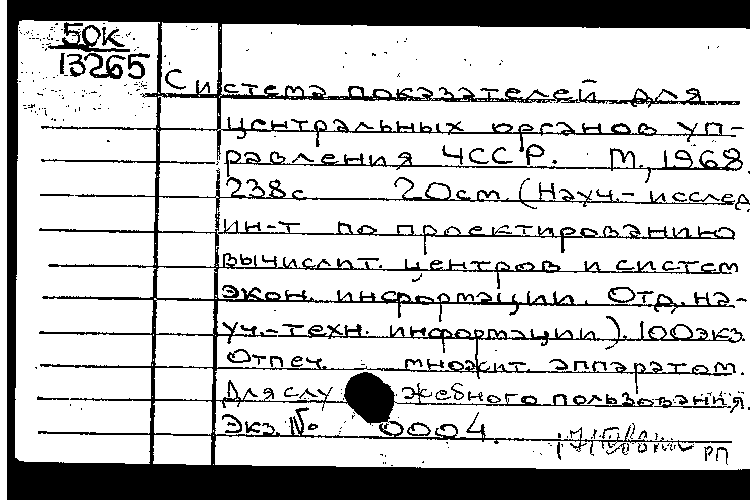 50К
13265
Система показателей для
центральных органов уп-
равления ЧССР. М., 1968.
238с 20см. (Науч.-исслед
ин-т по проектированию
вычислит. центров и систем
экон. информации. Отд. на-
уч.-техн. информации). 100экз.
Отпеч. множит. аппаратом.
Для слу жебного пользования.
Экз. № 0004.
РП